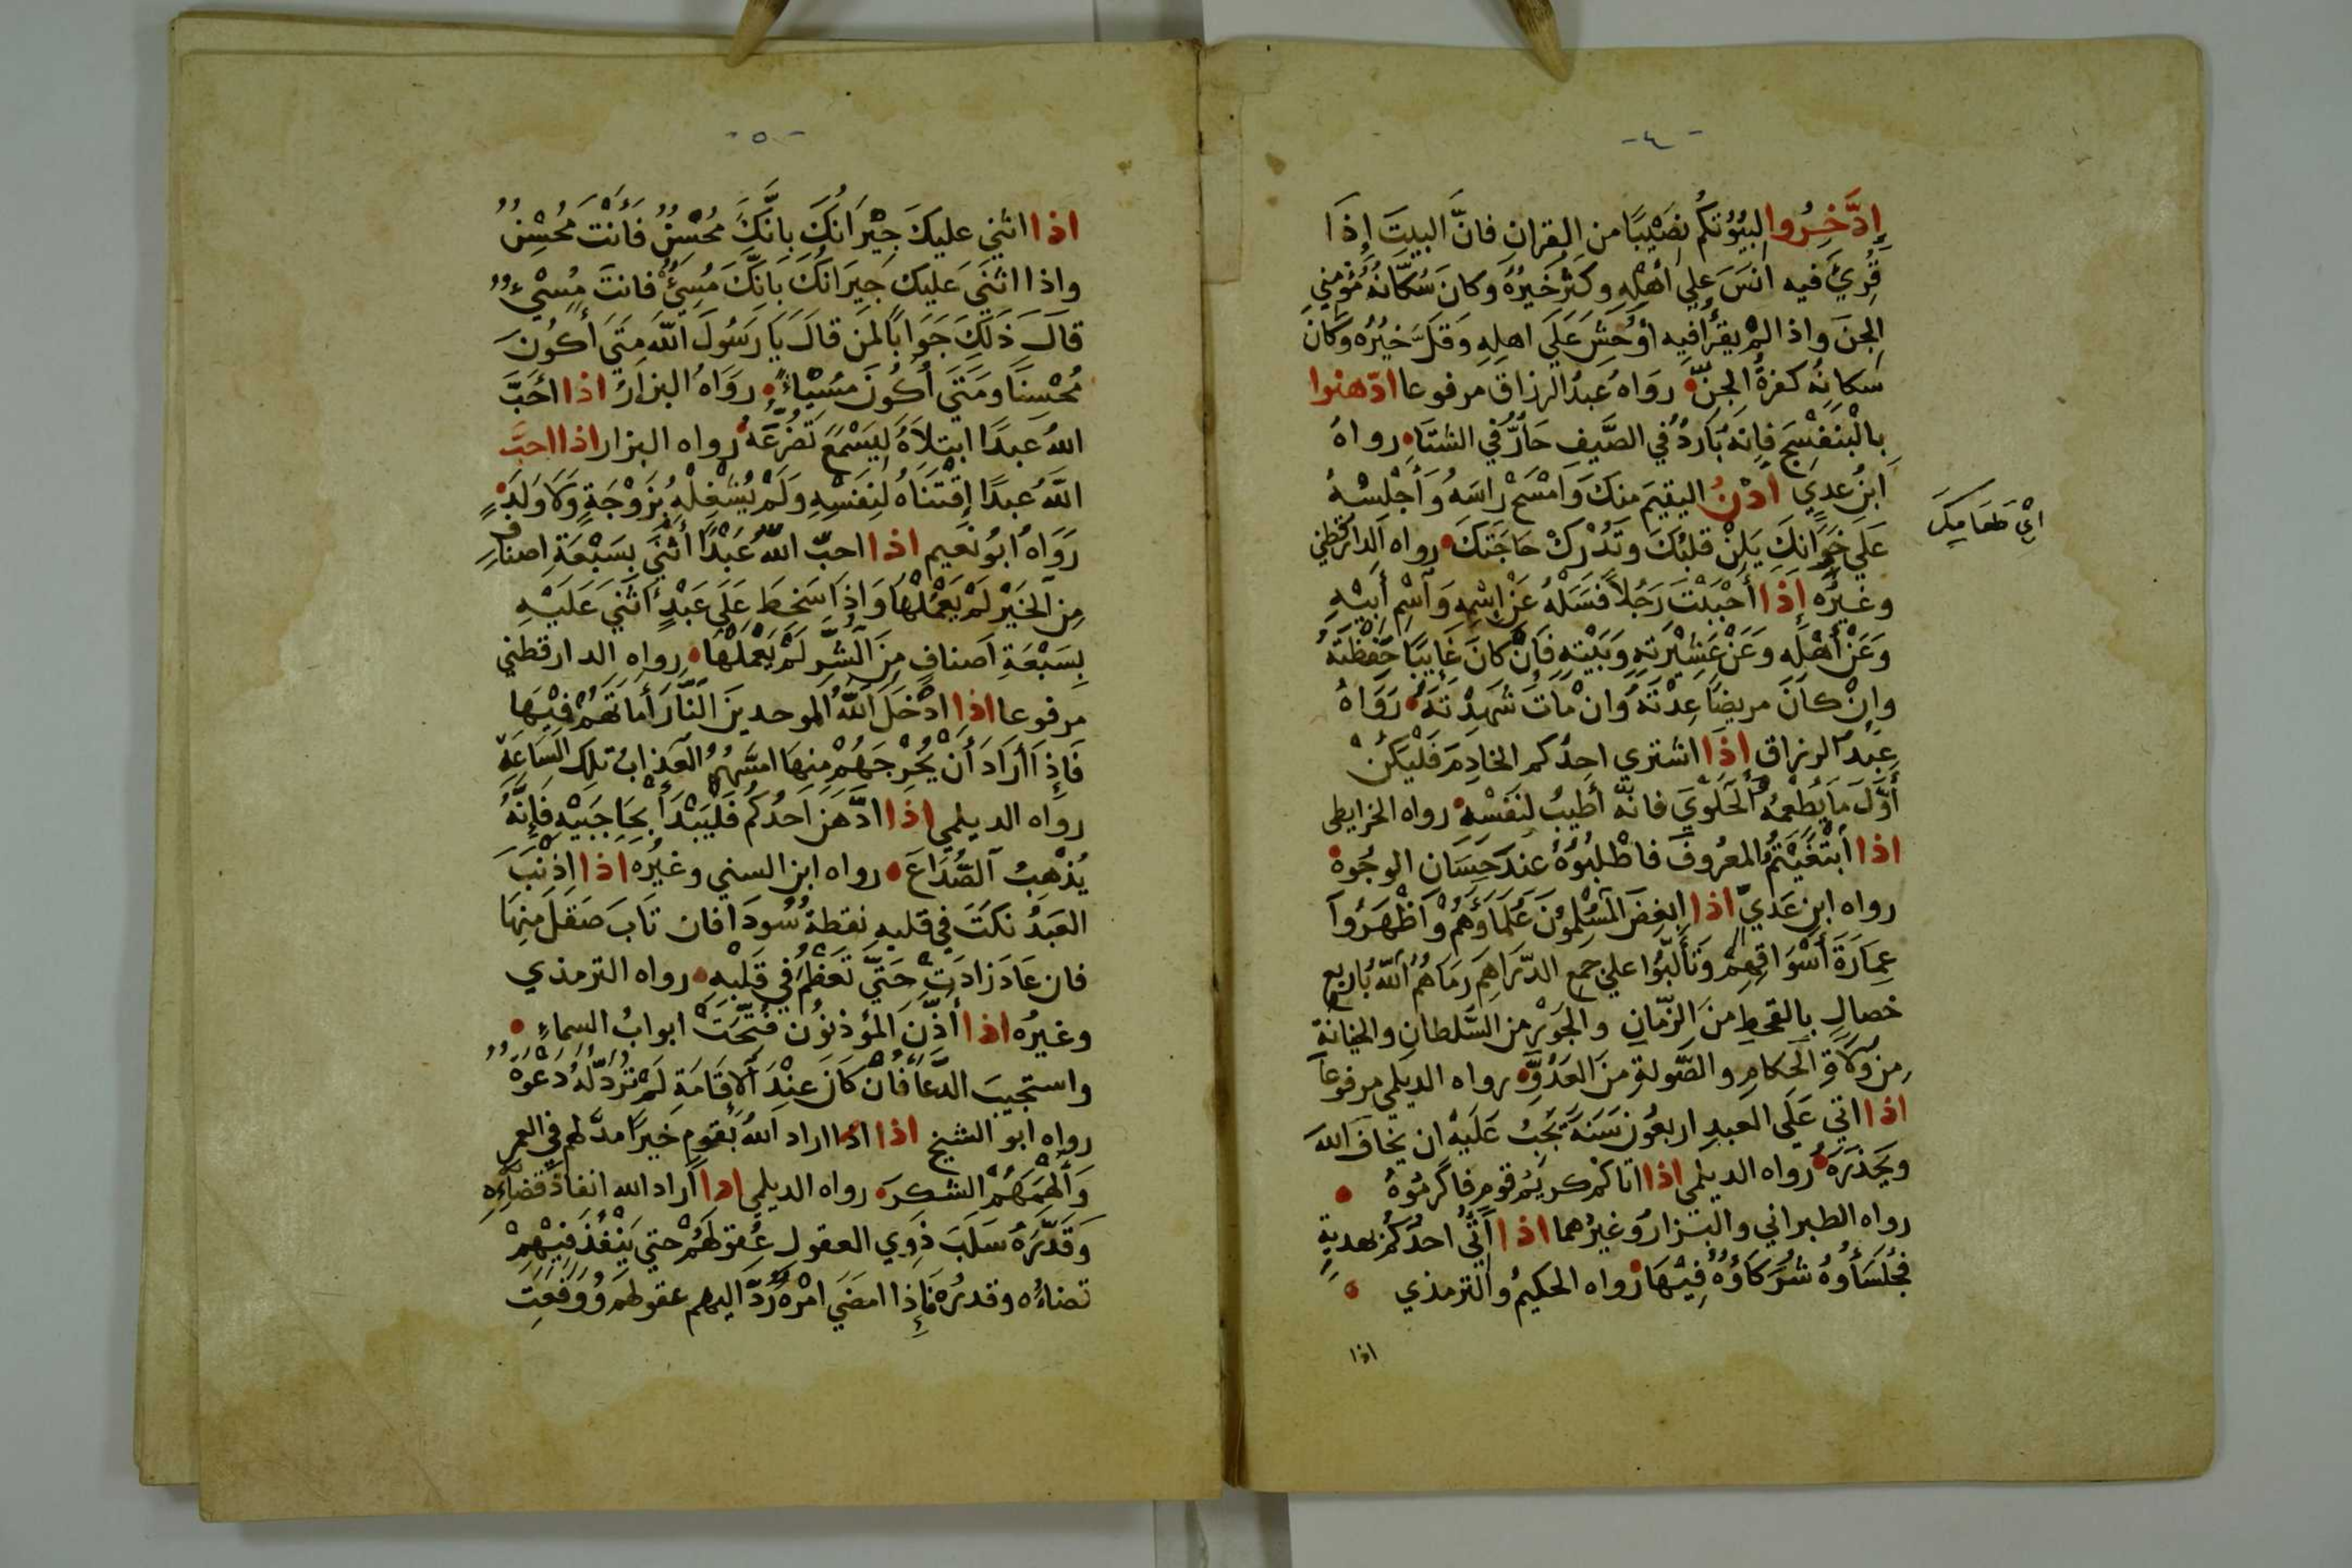 -٤-
إِدَّخِرُوا لبُيُوتِكُم نَصِيْبًا من القرانِ فانَّ البيتَ إِذَا
قُرِئَ فيه انسَ علي أهْلِهِ وكَثُرَ خَيْرُهُ وكانَ سُكّانُهُ مُؤمِني
الجنّ واذ الم يقرأ فيه أوْحَشَ عَلَي اهلِهِ وَقَلَّ خيْرُه وكانَ
سُكانُه كفرةُ الجنِّ رَوَاهُ عبدُ الرزاق مرفوعا ادّهنوا
بِالْبَنَفْسَجِ فإنهُ بَارِدُ في الصَّيفِ حَارٌّ في الشتَا رواهُ
ابنُ عدِي أدْنُ اليتيمَ منكَ وَامْسَحْ رَاسَهُ وَأَجْلِسْهُ
عَلَي خِوَانِكَ يَلِنْ قلبُكَ وتَدُرْكْ حَاجَتَكَ رواه الدارقطني
وغيرُه إِذَا أَحْبَبْتَ رَجُلاً فَسَلْهُ عَنْ إِسْمِهِ وَآسْمِ أَبِيْهِ
وَعَنْ أَهْلِهِ وَعَنْ عَشِيْرَتِهِ وَبَيْتِهِ فَإِنْ كانَ غَايبًا حَفِظْتَهُ
وإنْ كانَ مريضًا عِدْتَهُ وانْ مَاتَ شَهِدْتَهُ رَوَاهُ
عبدُ الرزاق اذَا اشتري احدُكم الخادِمَ فَلْيَكُنْ
أَوَّلَ مَا يُطْعِمُهُ الْحَلْوَي فانَّهُ أَطيبُ لنَفْسِهِ رواه الخرايطى
اذا أبْتَغَيْتُمُ المعرُوفَ فاطْلبُوْهُ عندَ حِسَانِ الوجُوه
رواه ابنُ عَدِيّ اذا ابغضَ المسْلِمُونَ عُلَمَاوَهُمْ وَأظْهَرُوا
عِمَارَةَ أَسْوَاقِهِمْ وَتَأَلَّبُوا علي جمع الدّرَاهِمَ رمَاهُمُ اللّهُ باربعِ
خصالٍ بالقحطِ منَ الزّمانِ والجَوْر من السّلطانِ والخيانةَ
مِن وُلَاةِ الحكامِ والصّولةِ مِنَ العَدُوِّ رواه الديلمي مرفوعاً
اذا اتي عَلَي العبدِ اربعُونَ سَنَةً يَجِبُ عَلَيْهِ ان يخافَ اللهَ
ويَحْذَرَهُ رواه الديلمي اذا اتاكُمْ كريَمُ قومٍ فاكْرِمُوهُ
رواه الطبراني والبَزارُ وغيرُهما اذا أُتِيَ احدُكُمْ بهديةٍ
فجُلَسَاؤُهُ شُرَكَاؤُهُ فِيْهَا رواه الحكيمُ والترمذي
اذا
اي طعامك
-٥-
اذا اثني عليكَ جِيْرَانُكَ بِانَّكَ مُحْسِنٌ فَأَنْتَ مُحْسِنٌ
واذا اثنَي عَلَيكَ جِيرَانُكَ بَانّكَ مُسِيْءٌ فَانتَ مُسِيْءٌ
قالَ ذَلِكَ جَوَابًا لمَن قالَ يَا رَسُولَ اللّهَ مَتَي أكُونَ
مُحْسِنًا ومَتَي أكُونَ مسُيْاءً روَاهُ البزارُ اذا احَبَّ
اللهُ عبدًا ابتلاَهُ لِيَسْمَعَ تَضَرُّعَهُ رواه البزار اذا احبَّ
اللّهُ عبدًا إقْتَنَاهُ لِنَفسِهِ وَلَمْ يُشْغِلْهُ بِزَوْجَةٍ وَلَا وَلَدٍ
رَوَاهُ ابُو نُعَيم اذا احبّ اللّهُ عَبْدًا أثنَي بِسَبْعَةِ اصنافٍ
مِنَ الخَيْرِ لَمْ يَعْمَلْهَا وَإِذَا سَخِطَ عَلَي عَبْدٍ أثنَي عَلَيْهِ
بِسَبْعَةِ أصنافٍ مِنَ الشَّرِّ لَمْ يَعْمَلْهَا رواه الدارقطني
مرفوعا اذا ادْخَلَ اللّهُ الموحدينَ النَّارَ أمَاتَهُمْ فِيْهَا
فَإِذَا أرَادَ أَنْ يُخْرِجَهُمْ مِنهَا امَسَّهُمُ العَذابُ تِلكَ السَاعَةِ
رواه الديلمي اذا ادَّهَنَ احدُكُم فَلْيَبْدَأ بِحَاجِبَيْهِ فإِنَّهُ
يُذْهِبُ الصُّدَاعَ رواه ابن السني وغيرُه اذا اذْنَبَ
العَبدُ نكَتَ في قلبهِ نقطةُ سُودَا فان تابَ صَقَلَ مِنهَا
فان عَادَ زادَتْ حَتَّي تَعَظّمُ في قَلبْهِ رواه الترمذي
وغيرُه اذا أَذَّنَ المُؤذنون فُتِّحَتْ ابوابُ السماءِ
واستجيبَ الدُّعَا فَانْ كَانَ عِنْدَ ألاِقَامَةِ لَمْ تُرَدّ لَهُ دُعْوَةٌ
رواه ابو الشيخ اذا اذا اراد اللهُ بقومٍ خيرًا مدَّ لهم في العمر
وَأَلْهَمَهُمْ الشكرَ رواه الديلمي اذا أراد الله انفاذَ قضائِهِ
وَقَدَّرَهُ سَلَبَ ذَوِي العقول عُقولَهُمْ حتي يَنْفُذَ فِيْهِمْ
قضاءُه وقدرُه فَإِذَا امضَي امْرَهُ رَدَّ اليهم عقولهَم وَوَقَعَتِ